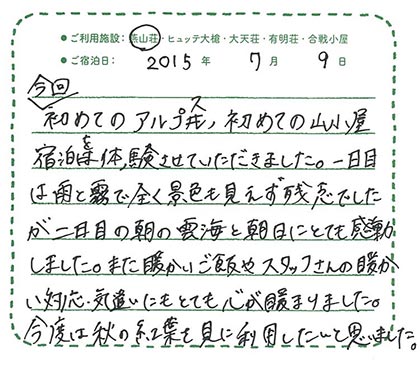 ● ご利用施設：燕山荘・ヒュッテ大槍・大天荘・有明荘・合戦小屋
● ご宿泊日： 2015 年 7 月 9 日
今回
初めてのアルプス、初めての山小屋
宿泊を体験させていただきました。一日目
は雨と霧で全く景色も見えず残念でした
が二日目の朝の雲海と朝日にとても感動
しました。また暖かいご飯やスタッフさんの暖か
い対応・気遣いにもとても心が暖まりました。
今度は秋の紅葉を見に利用したいと思いました。